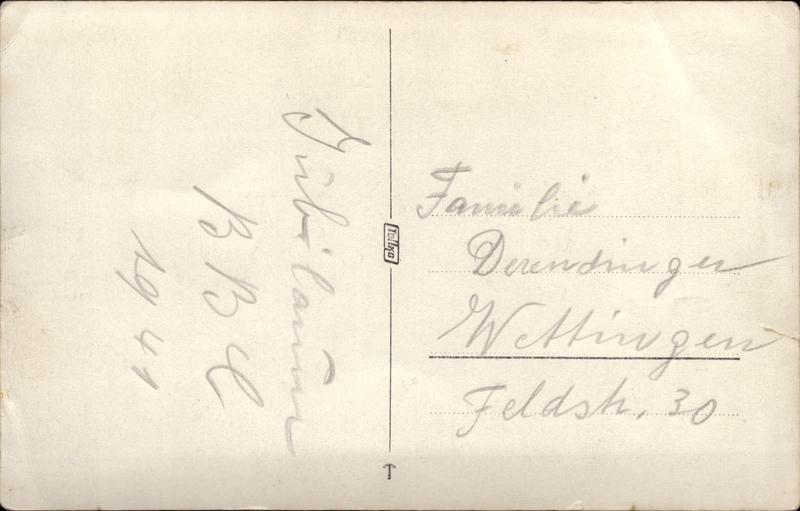 Jubiläum
BBC
1941
Tellko
Familie
Derendinger
Wettingen
Feldstr. 30